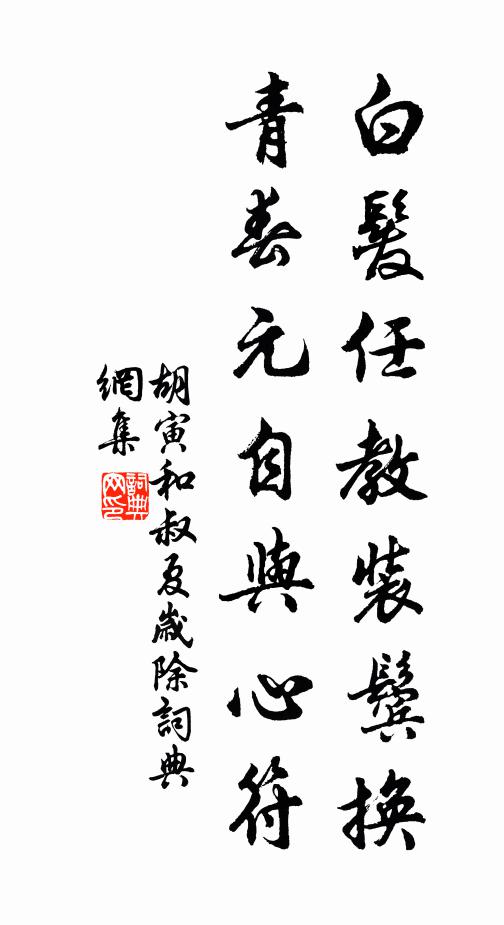 白髮任教裝鬢換
青春元自與心符
胡寅和叔夏歲除詞典
網集
詞典
网印